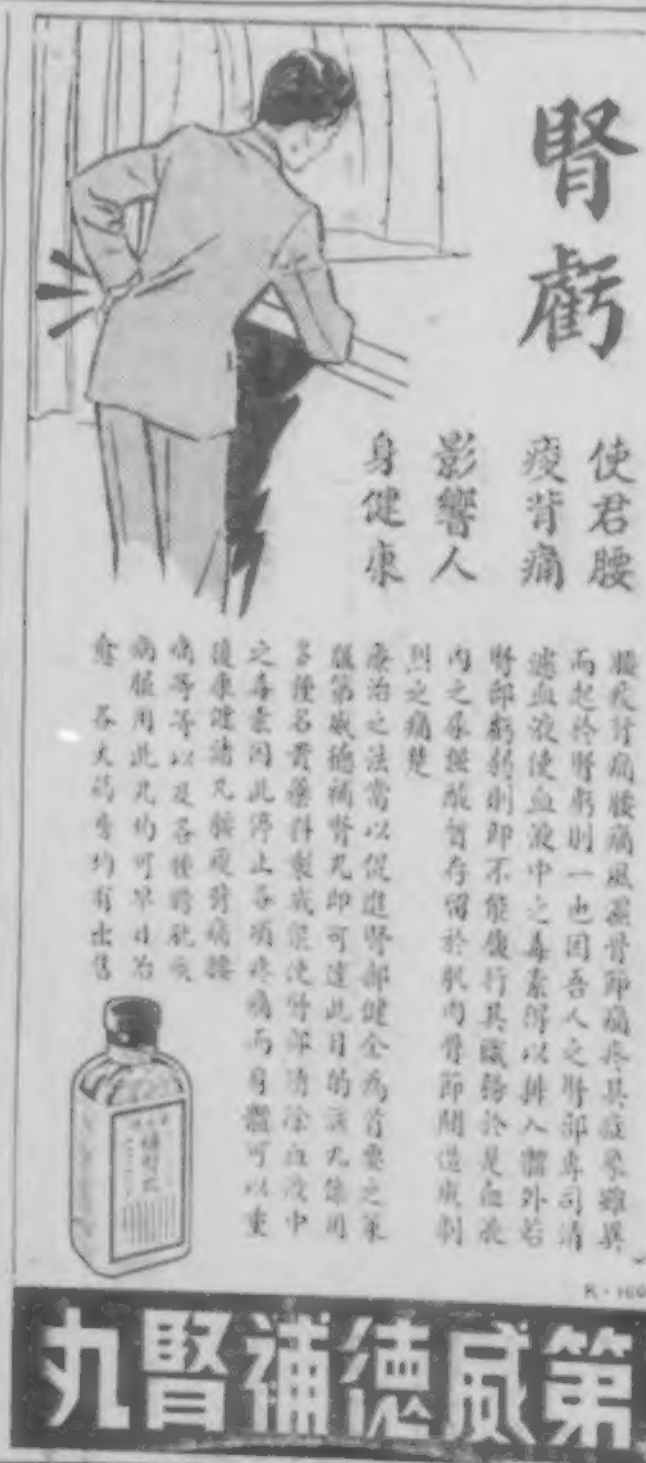 腎虧
使君腰
痠背痛
影響人
身健康
腰痠背痛腰痛風濕骨節痛疼其症象雖異
而起於腎虧則一也因吾人之腎部專司清
濾血液使血液中之毒素得以排入體外若
腎部虧弱則即不能履行其職務於是血液
內之尿酸暫存留於肌肉骨節間造成劇
烈之痛楚
療治之法當以促進腎部健全為首要之策
服第威德補腎丸即可達此目的該丸係用
多種名貴藥料製成能使腎部清除血液中
之毒素因此停止各項疼痛而身體可以重
復康健諸凡腰痠背痛腰
痛等等以及各種膀胱疾
病服用此丸均可早日治
愈 各大藥房均有出售
補腎丸
K-160
第威德補腎丸